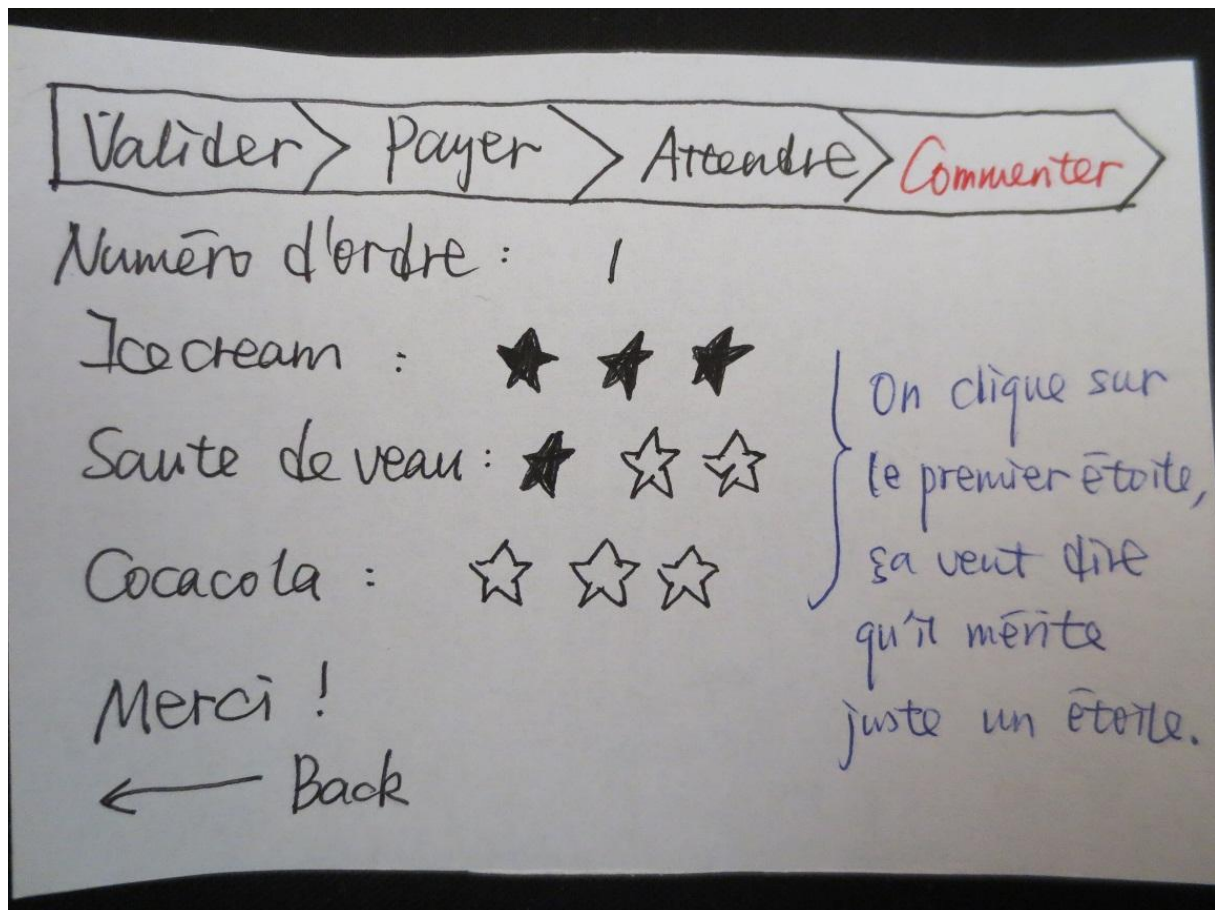 Valider Payer Attendre Commenter
Numéro d'ordre : 1
Icecream : ★ ★ ★
Saute de veau : ★ ☆ ☆
Cocacola : ☆ ☆ ☆
Merci !
← Back
On clique sur
le premier étoile,
ça veut dire
qu'il mérite
juste un étoile.